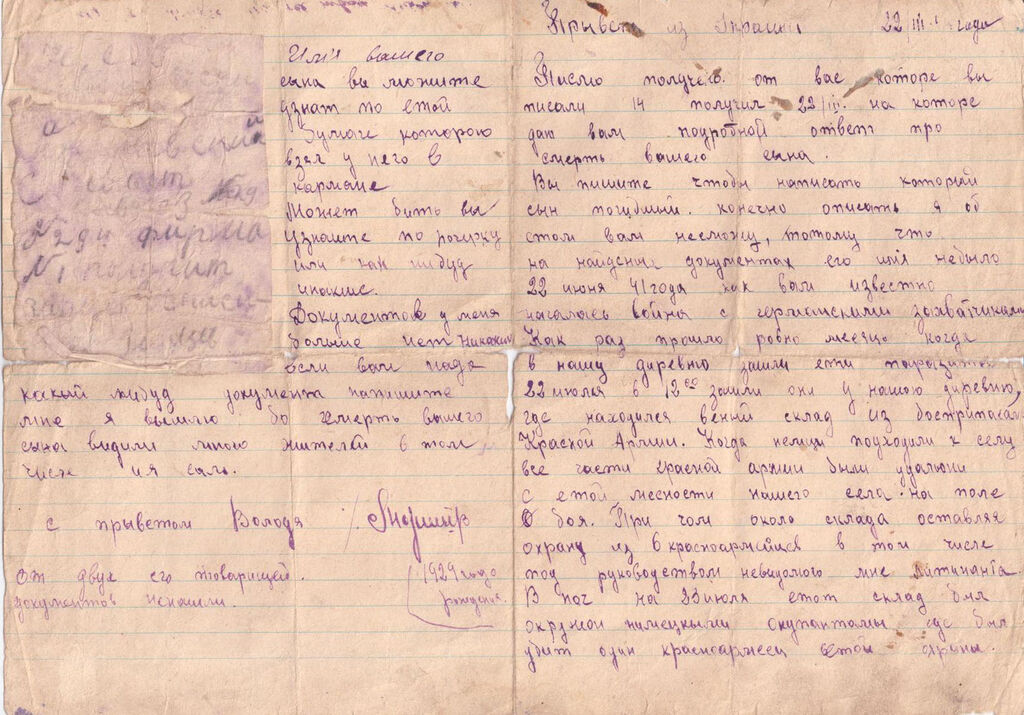 Прывет из Украйни 22/III. года
Писмо получено от вас которе вы
писали 14 получил 22/III. на которе
даю вам подробной ответ про
смерть вашего сына.
Вы пишите чтобы написать который
сын погиблий. конечно описать я об
етом вам несможу, потому что
на найденых документах его имя небыло
22 июня 41 года как вам известно
началась война с германскими захватчиками
Как раз прошло ровно месяць когда
в нашу диревню зашли ети
22 июля в 12 00 зашли они у нашою диревню,
где находился склад из боеприпасам
Красной Армии. Когда немци подходили к селу
все части красной армии были удалени
с етой месности нашего села. на поле
боя. При чом около склада оставляя
охрану из 6 красноармийцев в том числе
под руководством невидомого мне литинанта.
В ноч на 23 июля етот склад был
окружон нимецкыми окупантамы где был
убит один красноармеец етой охраны.
Имя вашего
сына вы можите
узнат по етой
бумаге которою
взял у него в
кармане
Может бить вы
узнаите по рочерку
или как нибуд
иначие.
Документов у меня
больше нет никаких
если вам нада
какый нибуд документа напишите
мне я вышлю бо смерть вашего
сына видили много жителей в том
числе и я сам.
с прыветом Володя
От двух его товарищей.
документов ненашли.
1929 года
рождения.
фирма
получит